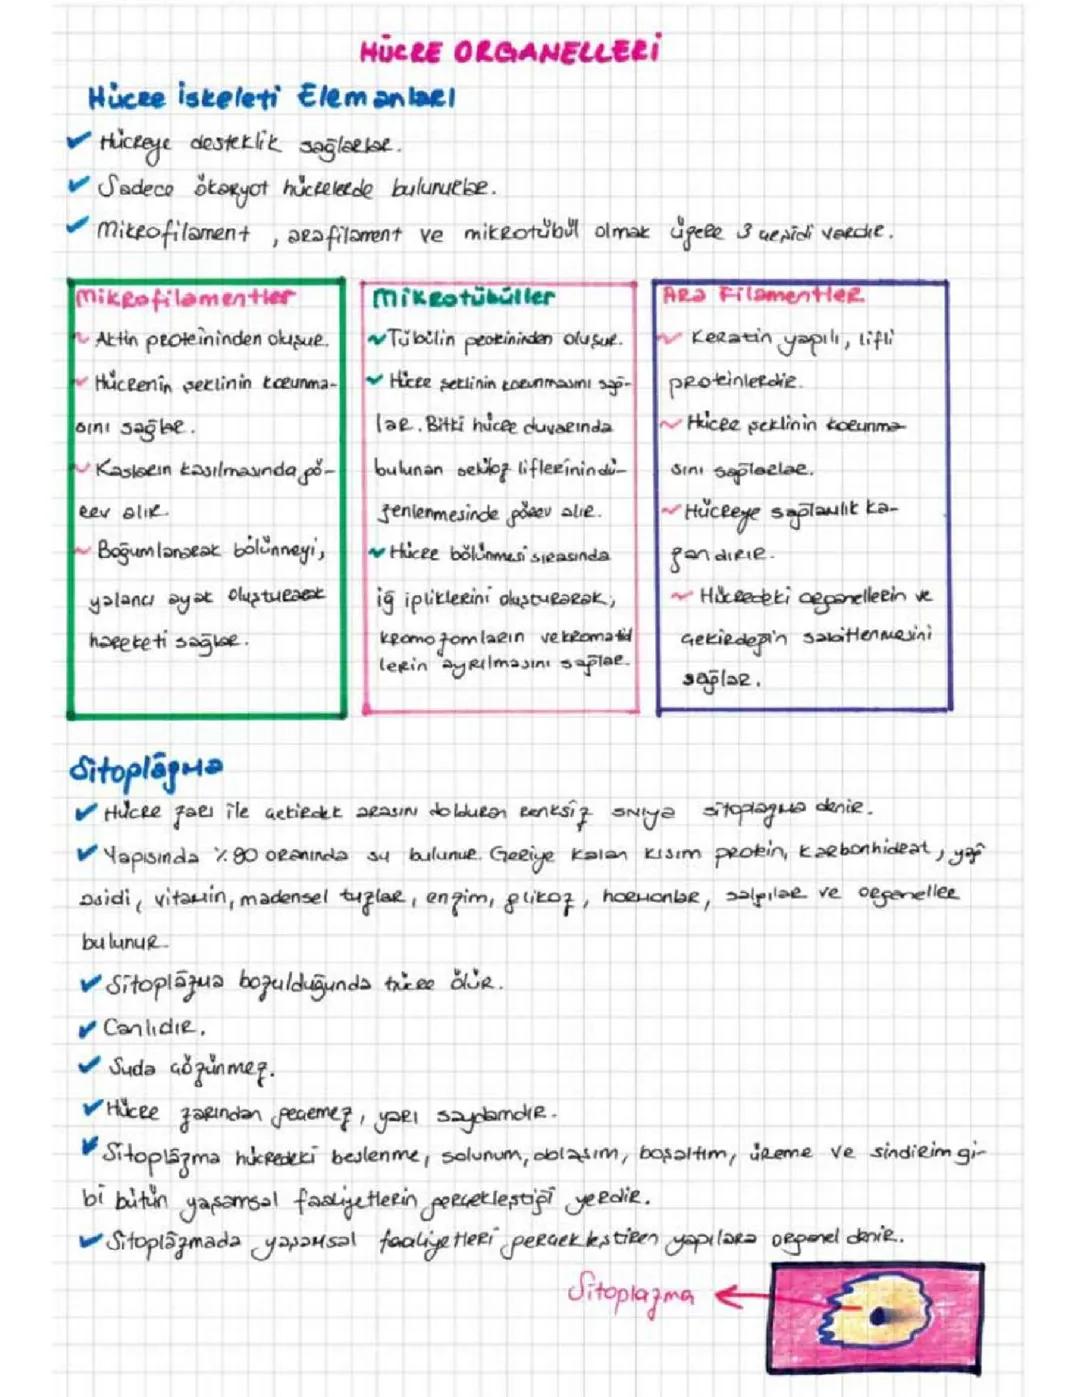 HÜCRE ORGANELLERİ
Hücre İskeleti Elemanları
Hücreye desteklik sağlarlar.
Sadece ökaryot hücrelerde bulunurlar.
Mikrofilament, arafilament ve mikrotübül olmak üzere 3 çeşidi vardır.
Mikrofilamentler
Aktin proteininden oluşur.
Hücrenin şeklinin korunma-
sını sağlar.
Kasların kasılmasında gö-
rev alır.
Boğumlanarak bölünmeyi,
yalancı ayak oluşturarak
hareketi sağlar.
Mikrotübüller
Tübilin proteininden oluşur.
Hücre şeklinin korunmasını sağ-
lar. Bitki hücre duvarında
bulunan selüloz liflerinin dü-
zenlenmesinde görev alır.
Hücre bölünmesi sırasında
iğ ipliklerini oluşturarak,
kromozomların ve kromatid
lerin ayrılmasını sağlar.
Ara Filamentler
Keratin yapılı, lifli
proteinlerdir.
Hücre şeklinin korunma-
sını sağlarlar.
Hücreye sağlamlık ka-
zandırır.
Hücredeki organellerin ve
çekirdeğin sabitlenmesini
sağlar.
Sitoplâzma
Hücre zarı ile çekirdek arasını dolduran renksiz sıvıya sitoplazma denir.
Yapısında %90 oranında su bulunur. Geriye kalan kısım protein, karbonhidrat, yağ
asidi, vitamin, madensel tuzlar, enzim, glikoz, hormonlar, salgılar ve organeller
bulunur.
Sitoplâzma bozulduğunda hücre ölür.
Canlıdır.
Suda çözünmez.
Hücre zarından geçemez, yarı saydamdır.
Sitoplâzma hücredeki beslenme, solunum, dolaşım, boşaltım, üreme ve sindirim gi-
bi bütün yaşamsal faaliyetlerin gerçekleştiği yerdir.
Sitoplâzmada yaşamsal faaliyetleri gerçekleştiren yapılara organel denir.
Sitoplazma